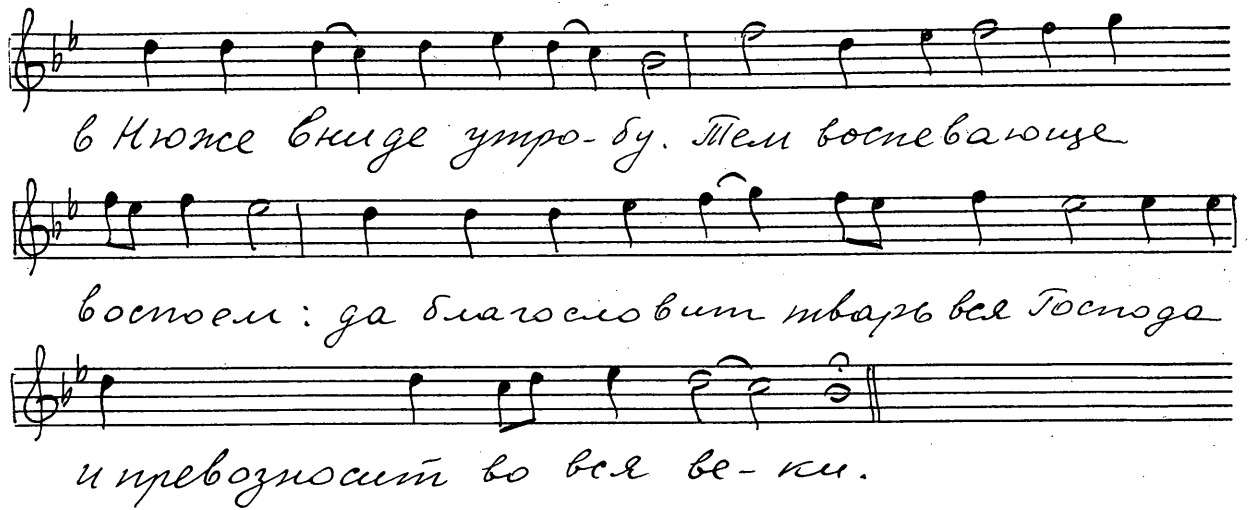 в Нюже вниде утро-бу. Тем воспевающе
воспоем: да благословит тварь вся Господа
и превозносит во вся ве-ки.